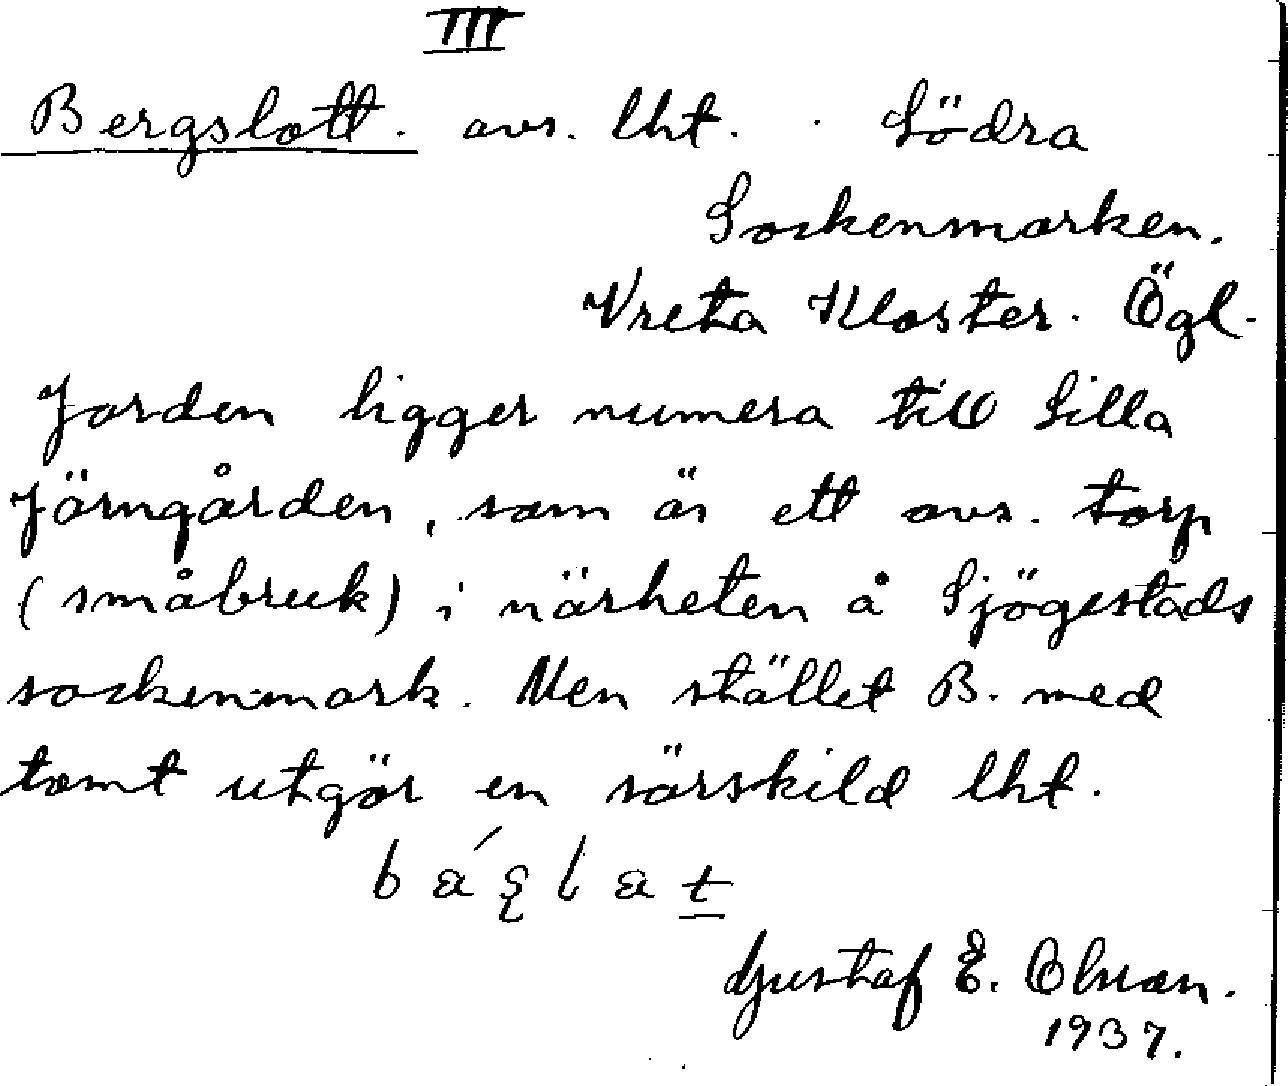 III
Bergslott. avs. lht. Södra
Sockenmarken.
Vreta Kloster. Ögl.
Jorden ligger numera till Lilla
Järngården, som är ett avs. torp
(småbruk) i närheten å Sjögestads
sockenmark. Men stället B. med
tomt utgör en särskild lht.
Gustaf E. Olsson.
1937.